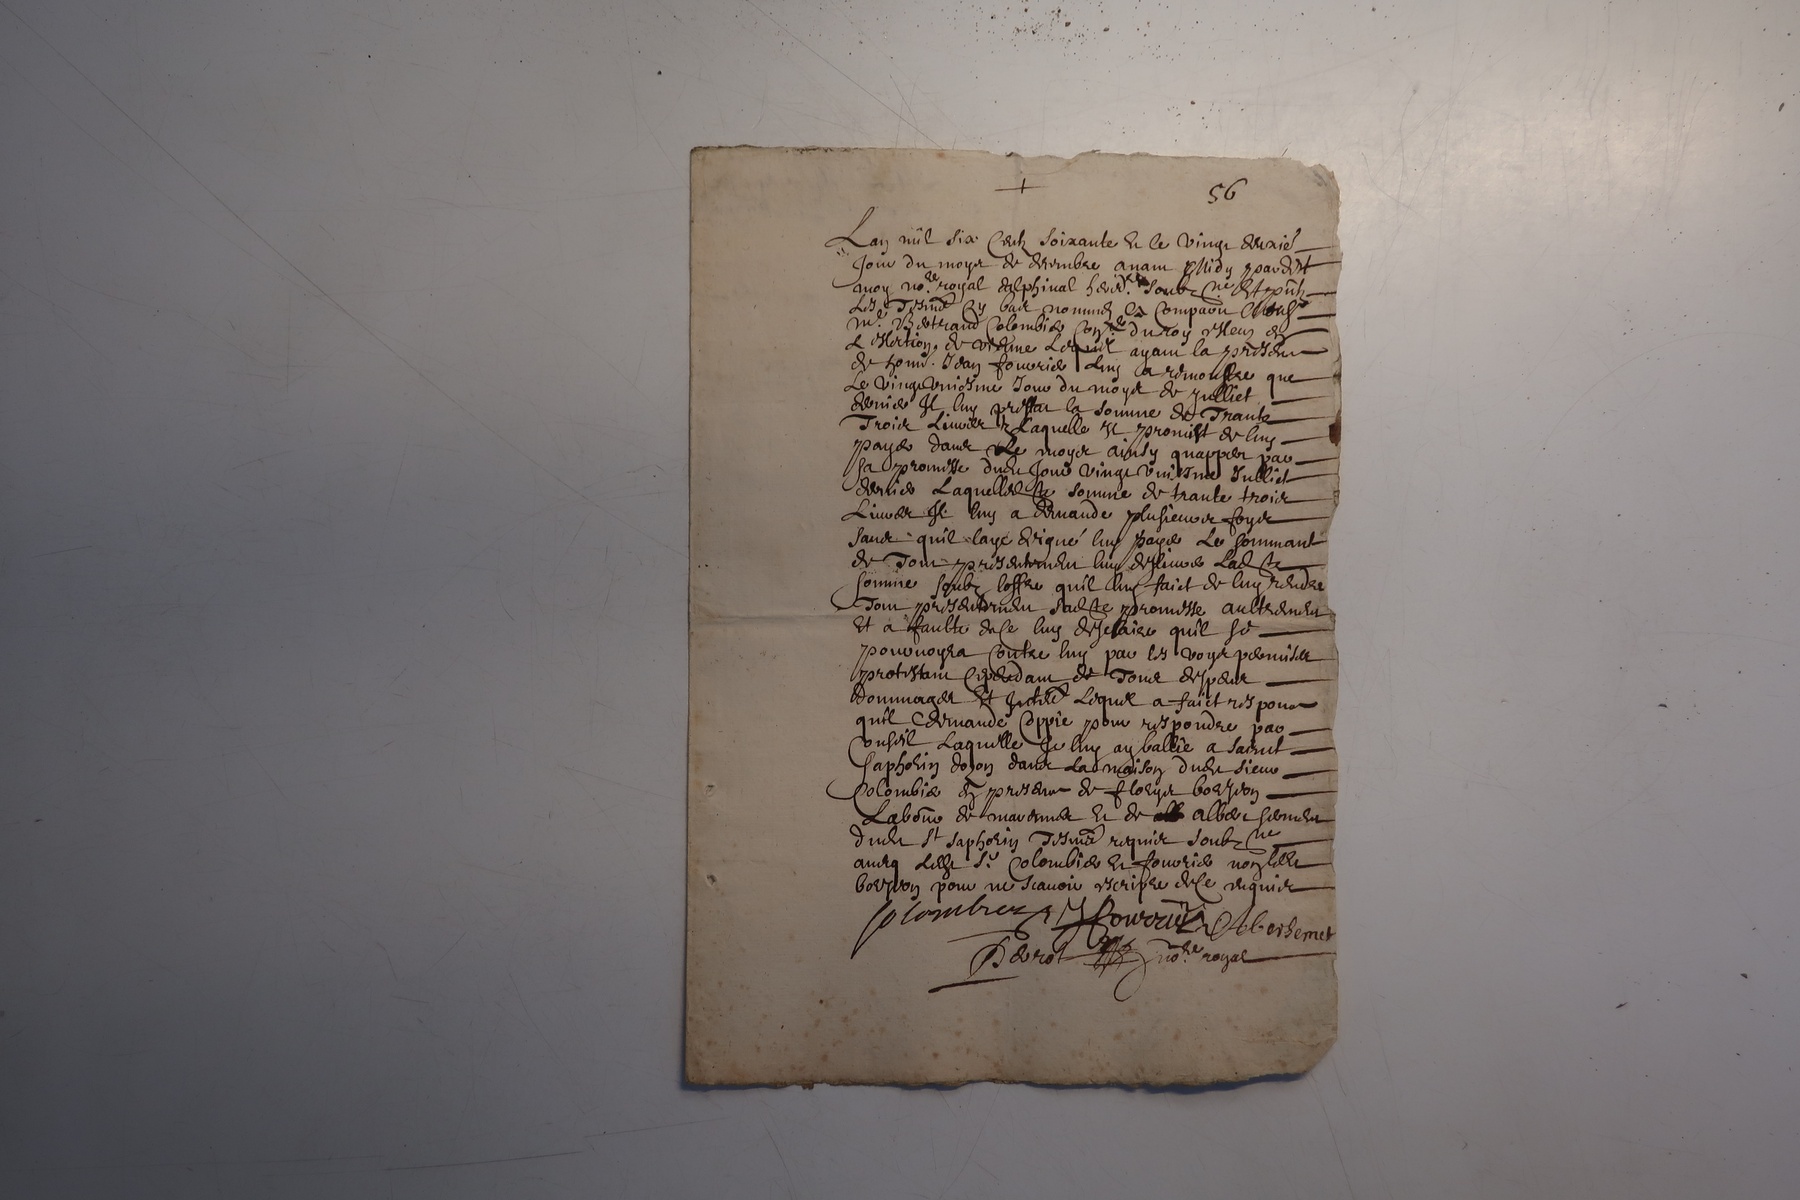 +
56
Lan mil six Centz Soixante et le vingt deuxie
Jour du moys de decembre avant Midy pardevt
moy nore royal delphinal hered.re Soubz.ne et present
Les Tesmoings Cy bas nommes a Comparu
me Bertrand Colombier Con.er du roy esleu en
L eslection de vienne Lequel ayant la presence
de hon. Jean fourrier Luy a remonstre que
Le Vingt Jour du moys de Julliet
dernier Il luy prestat la Somme de Trante
Trois Livres Laquelle Il promist de luy
payer dans Le moys ainsy quappert par
Sa promesse dudt Jour Vingt Julliet
dernier Laquelle dte Somme de trante trois
Livres Il luy a demande plusieurs foys
Sans quil laye luy payer Le Sommant
de Tout presentement luy deslivrer Ladte
Somme Soubz loffre quil luy faict de luy rendre
Tout presentement Sadte promesse aultrement
Et a faulte de Ce luy desclaire quil Se
pourvoyra Contre luy par les voyes permises
protestant Cependant de Tous despens
Dommages Et Interests Lequel a faict response
quil demande Coppie pour respondre par
Conseil Laquelle Je luy ay ballie a Sainct
Saphorin dozon dans La maison dudt Sieur
Colombier En presence de
Labour. de et de
dudt St Saphorin Tesmoings requis Soubz.ne
avecq Lesd. Sr Colombier et fourrier non ledt
pour ne Scavoir escripre de Ce requis
Colombier J Fourrier
nore royal